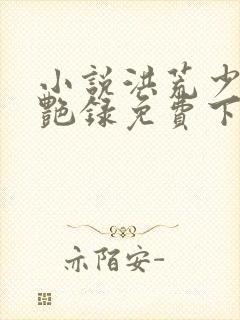 小說洪荒少
艷録免費下
亦陌安-